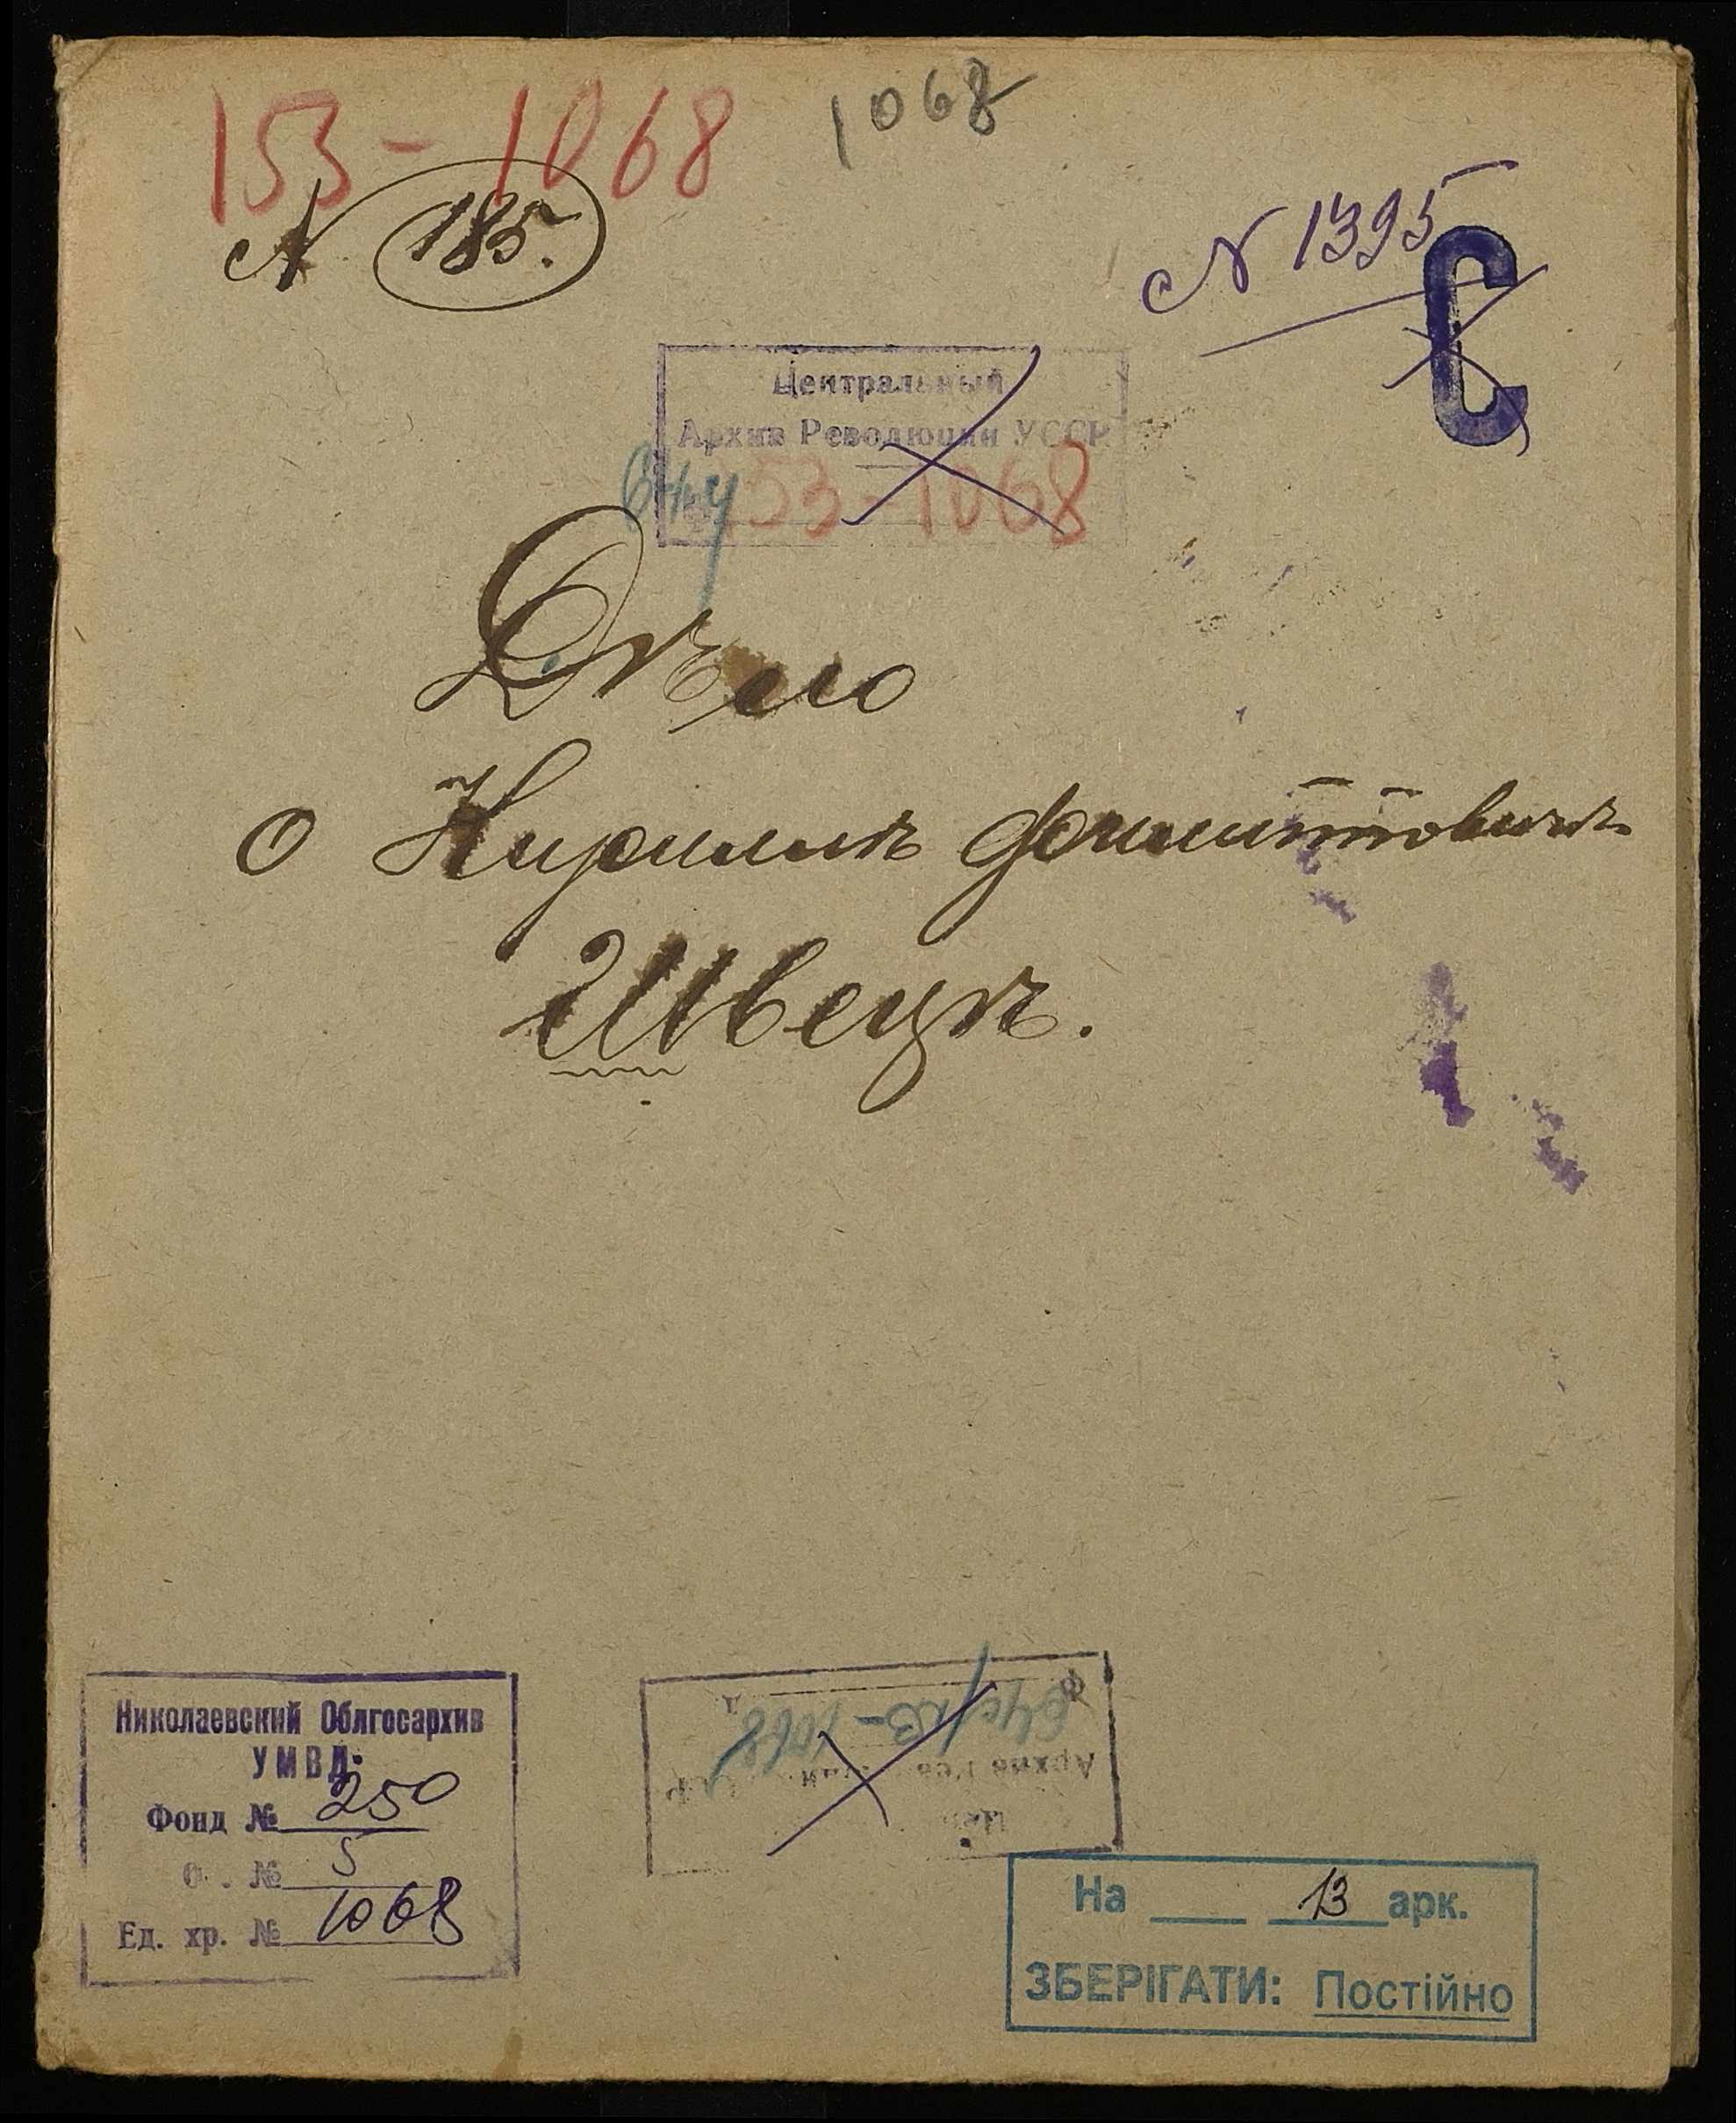 153-1068
1068
N 185.
N 1395
С
Центральный
Архив Революции УССР
153-1068
Дѣло
о Кириллѣ Филипповичѣ
Швецѣ.
Николаевский Облгосархив
УМВД.
Фонд № 250
О . № 5
Ед. хр. № 1068
Ф
1068
Архив
На 13 арк.
ЗБЕРІГАТИ: Постійно